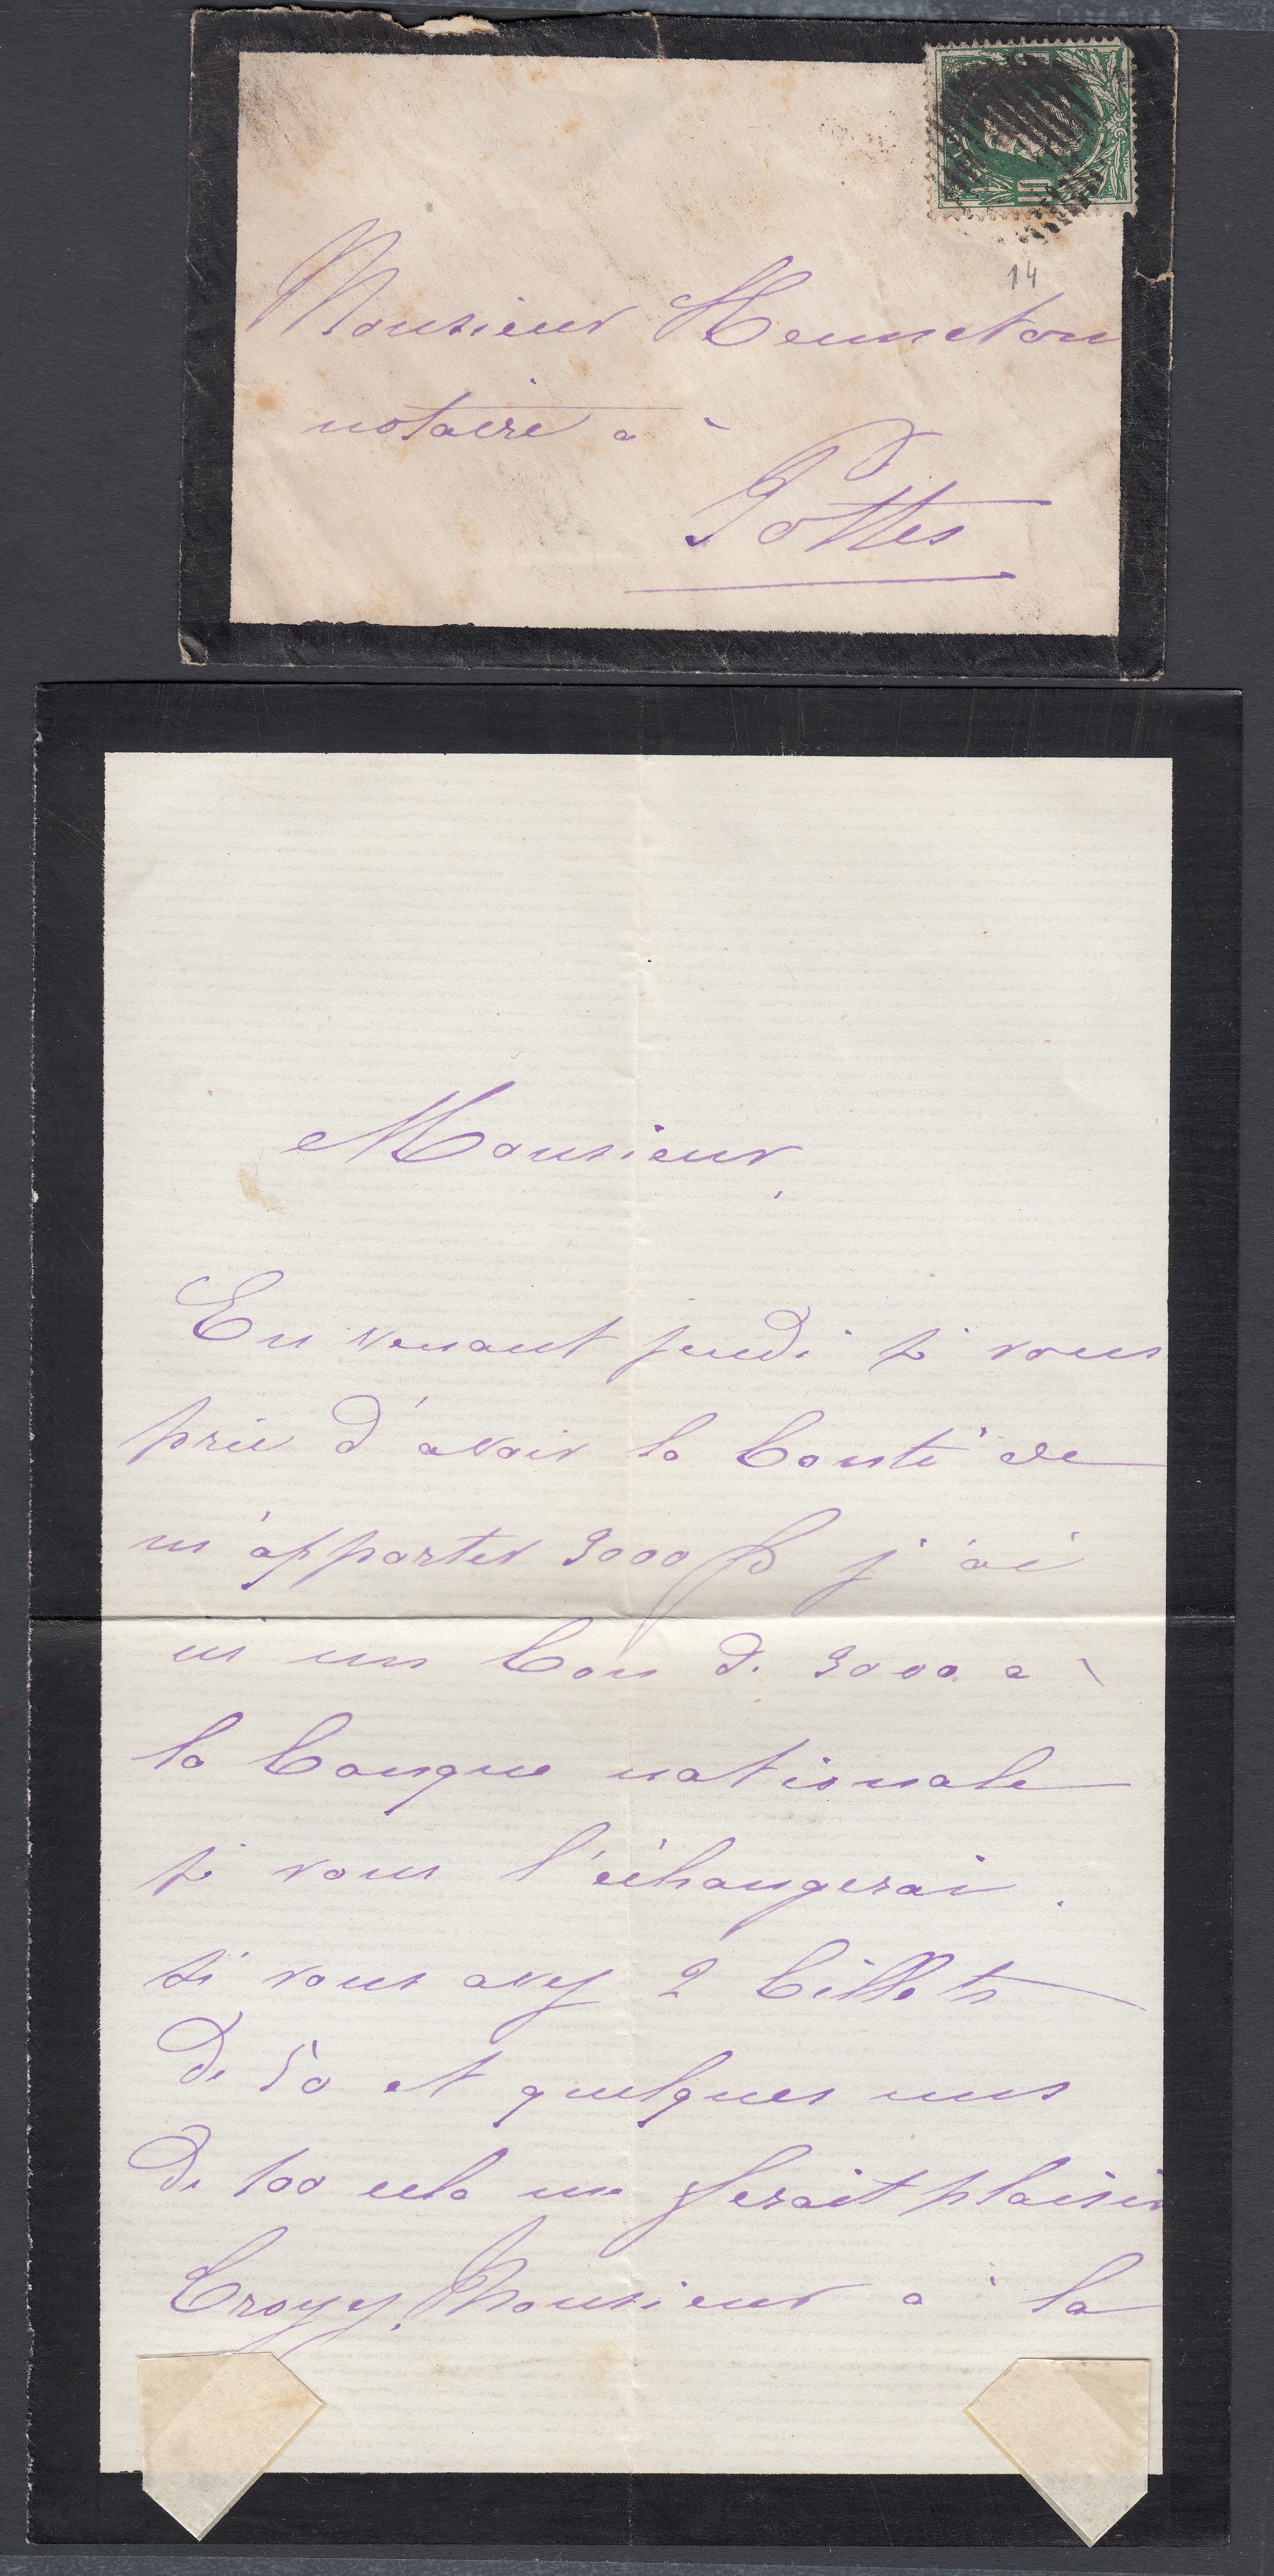 14
Monsieur Henneton
notaire à
Pottes
Monsieur,
En venant jeudi je vous
prie d'avoir la bonté de
m'apporter 3000 f j'ai
ici un bon de 3000 à
la banque nationale
je vous l'échangerai.
si vous avez 2 billets
de 50 et quelques uns
de 100 cela me ferait plaisir
Croyez, Monsieur à la